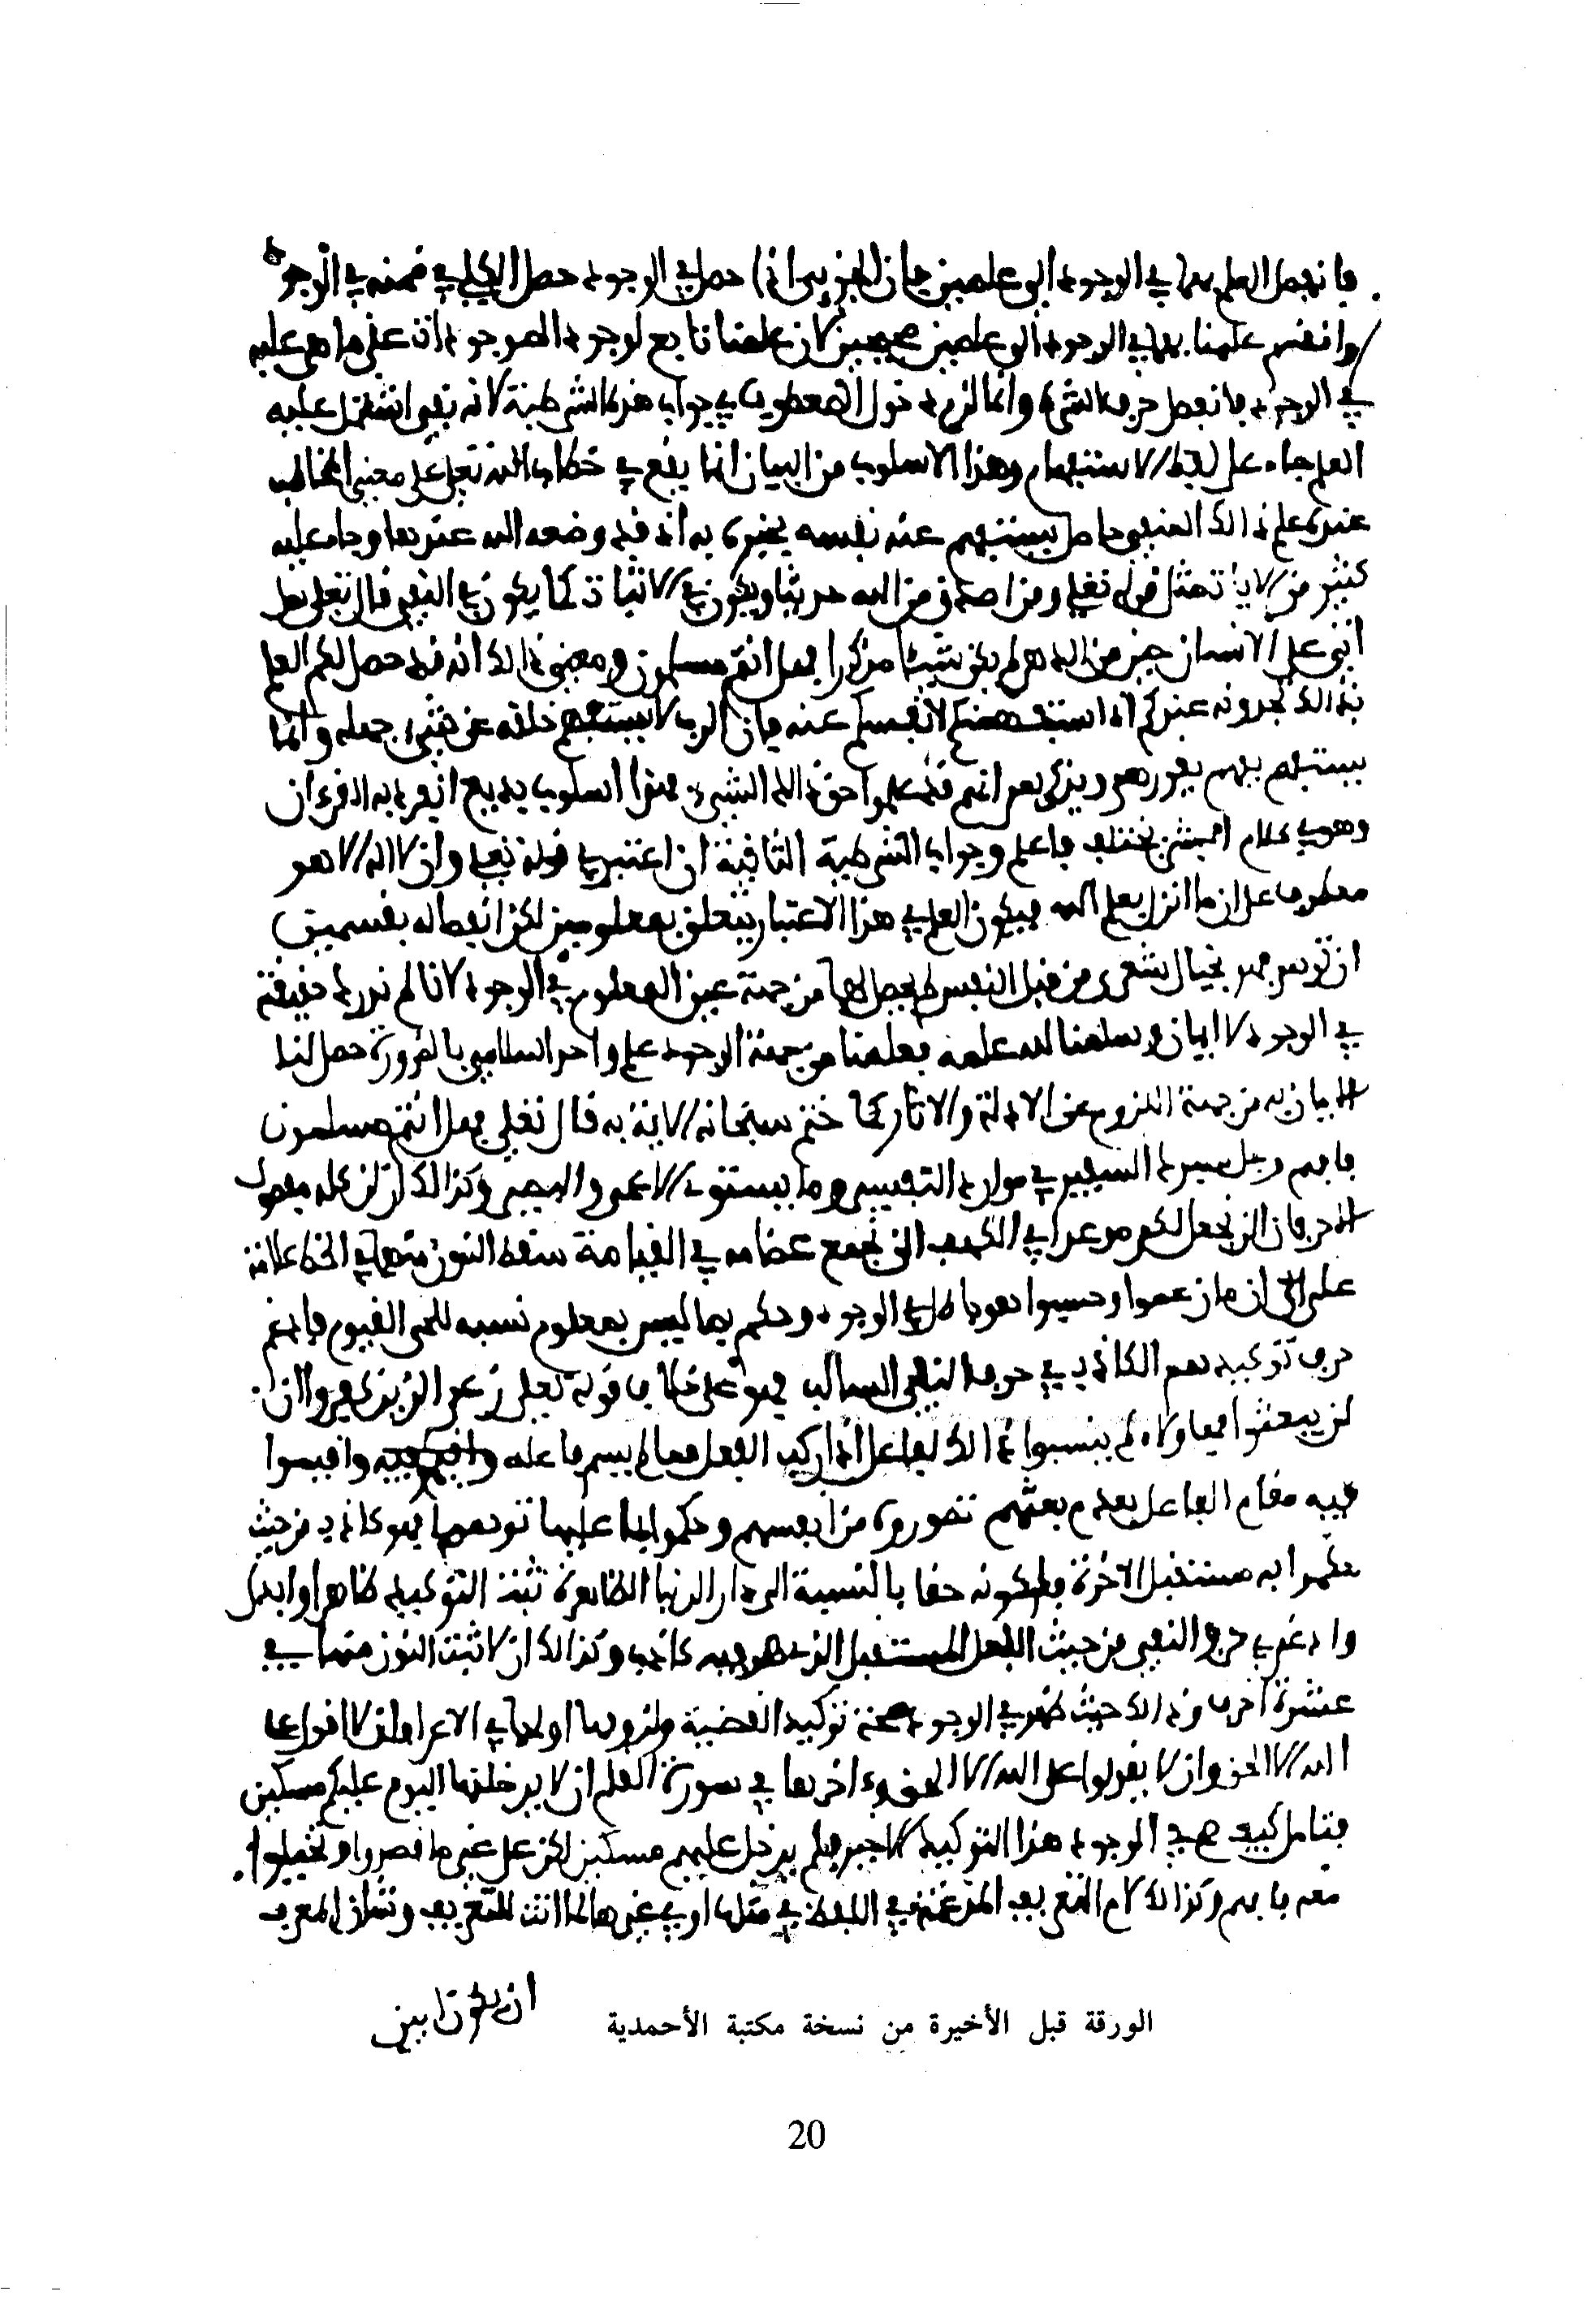 فانفصل العلم بهما في الوجود الى علمين فان الجزءي اذا حصل في الوجود حصل الكلي في ضمنه في الوجود
وانقسم علمنا بهما في الوجود الى علمين صحيحين لان علمنا تابع لوجود الموجودات على ما هي عليه
في الوجود فانفصل حرف الشرط وانما لزم دخول المعطوف في جواب هذه الشرطية لانه نفي اشتمل عليه
العلم جاء على لفظ الاستفهام وهذا الاسلوب من البيان انما يقع في خطاب الله تعلى على معنى ان المخاطب
عنده علم ذالك المنفي حاصل يستفهم عنه نفسه يخبره به اذ قد وضعه الله عندها وجاء عليه
كثير من الايات مثل قوله تعلى ومن اصدق من الله حديثا ويكون في الاثبات كما يكون في النفي قال تعلى هل
اتى على الانسان حين من الدهر لم يكن شيئا مذكورا فهل انتم مسلمون ومعنى ذالك انه قد حصل لكم العلم
بذالك تجدونه عندكم اذا استفهمتم انفسكم عنه فان الرب لا يستفهم خلقه عن شيء جهله وانما
يستفهمهم ليقررهم ويذكرهم انهم قد علموا حق ذالك الشيء فهذا اسلوب بديع انفرد به القرءان
وهو في كلام البشر مختلف فاعلم وجواب الشرطية الثانية ان اعتبرنا قوله تعلى وان لا اله الا هو
معطوف على ان ما انزل بعلم الله فيكون العلم في هذا الاعتبار يتعلق بمعلومين لكن انفصاله بقسمين
في الوجود لا ايمان وسلمنا لله علمه فعلمنا من جهة الوجود علم واحد اسلامي بالضرورة حصل لنا
الايمان به من جهة اللزوم عن الادلة والاثار كما ختم سبحانه الاية به فقال تعلى فهل انتم مسلمون
فافهم وما يستوي الاعمى والبصير وكذالك لن كله مفصول
الا حرفان الن نجعل لكم موعدا في الكهف الن نجمع عظامه في القيامة سقط النون منهما في الخط علامة
على ان ما زعموا وحسبوا هو باطل في الوجود وحكم بما ليس بمعلوم نسبه للحي القيوم فادغم
حرف توكيدهم الكاذب في حرف النفي السالب فهو على خلاف قوله تعلى زعم الذين كفروا ان
لن يبعثوا فهاولاء لم ينسبوا ذالك لفاعل اذ ركب الفعل لما لم يسم فاعله واقيموا
فيه مقام الفاعل بعدم بعثهم تصوروه من انفسهم وحكموا بها عليها توهما فهو كاذب من حيث
حكموا به مستقبل الاخرة ولكونه حقا بالنسبة الى دار الدنيا الظاهرة ثبت التوكيد ظاهرا
وادغم في حرف النفي من حيث الفعل المستقبل الذي هو فيه كاذب وكذالك ان لا ثبت النون منهما في
عشرة احرف وذالك حيث ظهر في الوجود صحة توكيد القضية ولزومها اولها في الاعراف ان لا اقول على
الله الا الحق وان لا يقولوا على الله الا الحق وءاخرها في سورة القلم ان لا يدخلنها اليوم عليكم مسكين
فتامل كيف صح في الوجود هذا التوكيد الاخير فلم يدخل عليهم مسكين لكن على غير ما قصدوا وتخيلوا
معه فافهم وكذا لام التعريف المدغمة في اللفظ في مثلها او في غيرها لما كانت للتعريف وشان المعرف
ان يكون ابين
الورقة قبل الأخيرة من نسخة مكتبة الأحمدية
20